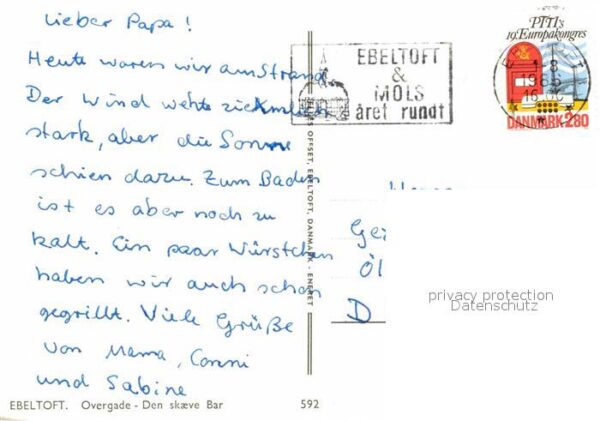 Lieber Papa!
Heute waren wir am Strand
Der Wind wehte ziemlich
stark, aber die Sonne
schien dazu. Zum Baden
ist es aber noch zu
kalt. Ein paar Würstchen
haben wir auch schon
gegrillt. Viele Grüße
von Mama, Conni
und Sabine
EBELTOFT. Overgade - Den skæve Bar 592
OFFSET, EBELTOFT, DANMARK - ENERET
EBELTOFT
&
MOLS
året rundt
PTTI's
19. Europakongres
1986
DANMARK 280
D
privacy protection
Datenschutz